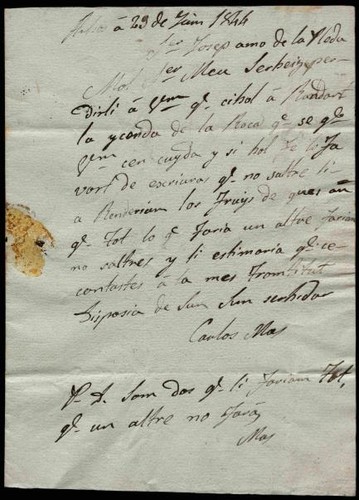 à 23 de Juny 1844
Sor Josep amo de la Pleda
Mol Sor Meu Serheix per
dirli à Vm q. si hol à Rendar
la ycenda de la Roca q. se q.
Vm cen cuyda y si hol fe lo fa
vort de escriuras q. no saltre li
a Renderiam los fruys de ques an
q. Tot lo q. faria un altre fariam
no saltres y li estimaria q. ce
contestes à la mes Promtitut
disposia de Sun Sun serhidor
Carlos Mas
P. D. Som dos q. li fariam Tot
q. un altre no farà
Mas